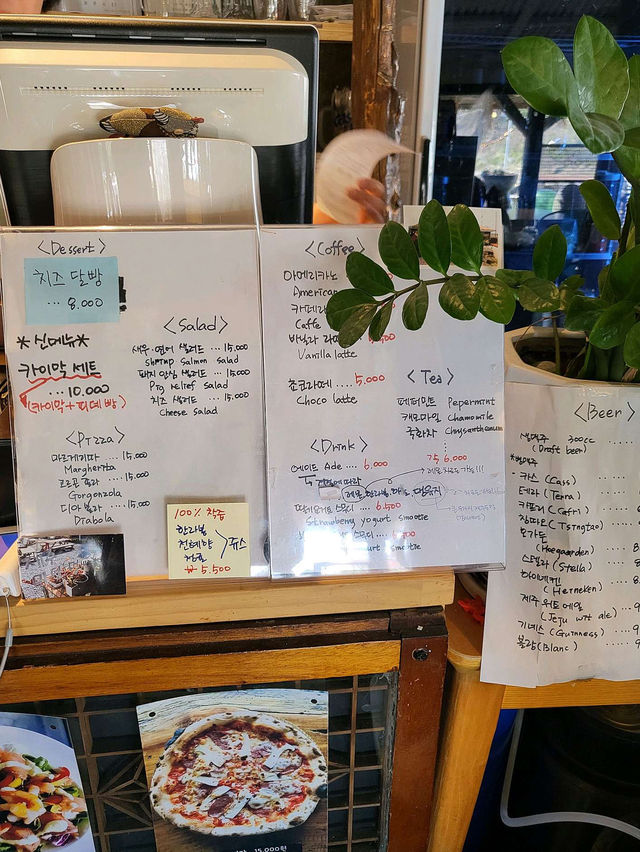 <Dessert>
치즈 달빵
... 8.000
*신메뉴*
카이막 세트
... 10.000
(카이막+피데빵)
<Salad>
새우·연어 샐러드 ... 15.000
shrimp salmon salad
돼지 안심 샐러드 ... 15.000
Pig relief salad
치즈 샐러드 ... 15.000
cheese salad
<Pizza>
마르게리따 .... 15.000
Margherita
고르곤 졸라 .... 15.000
Gorgonzola
디아볼라 .... 15.000
Diabola
100% 착즙
한라봉
천혜향
주스
₩ 5.500
<Coffee>
아메리카노
American
카페라
Caffe
바닐라 라
Vanilla latte
초코라떼 .... 5.000
Choco latte
<Tea>
페퍼민트 Pepermint
캐모마일 Chamomile
국화차 Chrysanthemum
각 6.000
<Drink>
에이드 Ade .... 6.000
딸기요거트 스무디 ... 6.500
Strawberry yogurt smootie
스무디
yogurt smootie
<Beer>
생맥주 300cc ......
(Draft beer)
*병맥주
카스 (Cass)
테라 (Terra)
카프리 (Cafri)
칭따오 (Tsingtao)
호가든
(Hoegaarden)
스텔라 (Stella)
하이네켄
(Heineken)
제주 위트 에일
(Jeju wit ale)
기네스 (Guinness)
블랑 (Blanc)
15.000원